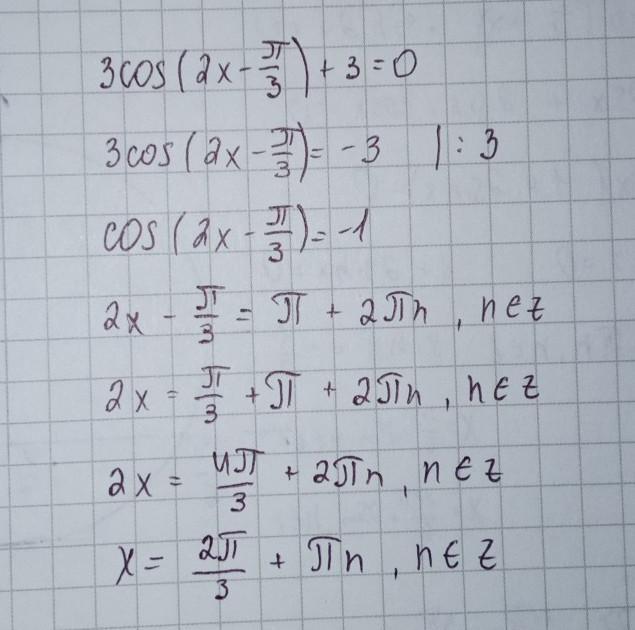 3cos(2x - π/3) + 3 = 0
3cos(2x - π/3) = -3 | : 3
cos(2x - π/3) = -1
2x - π/3 = π + 2πn , n ∈ z
2x = π/3 + π + 2πn , n ∈ z
2x = 4π/3 + 2πn , n ∈ z
x = 2π/3 + πn , n ∈ z